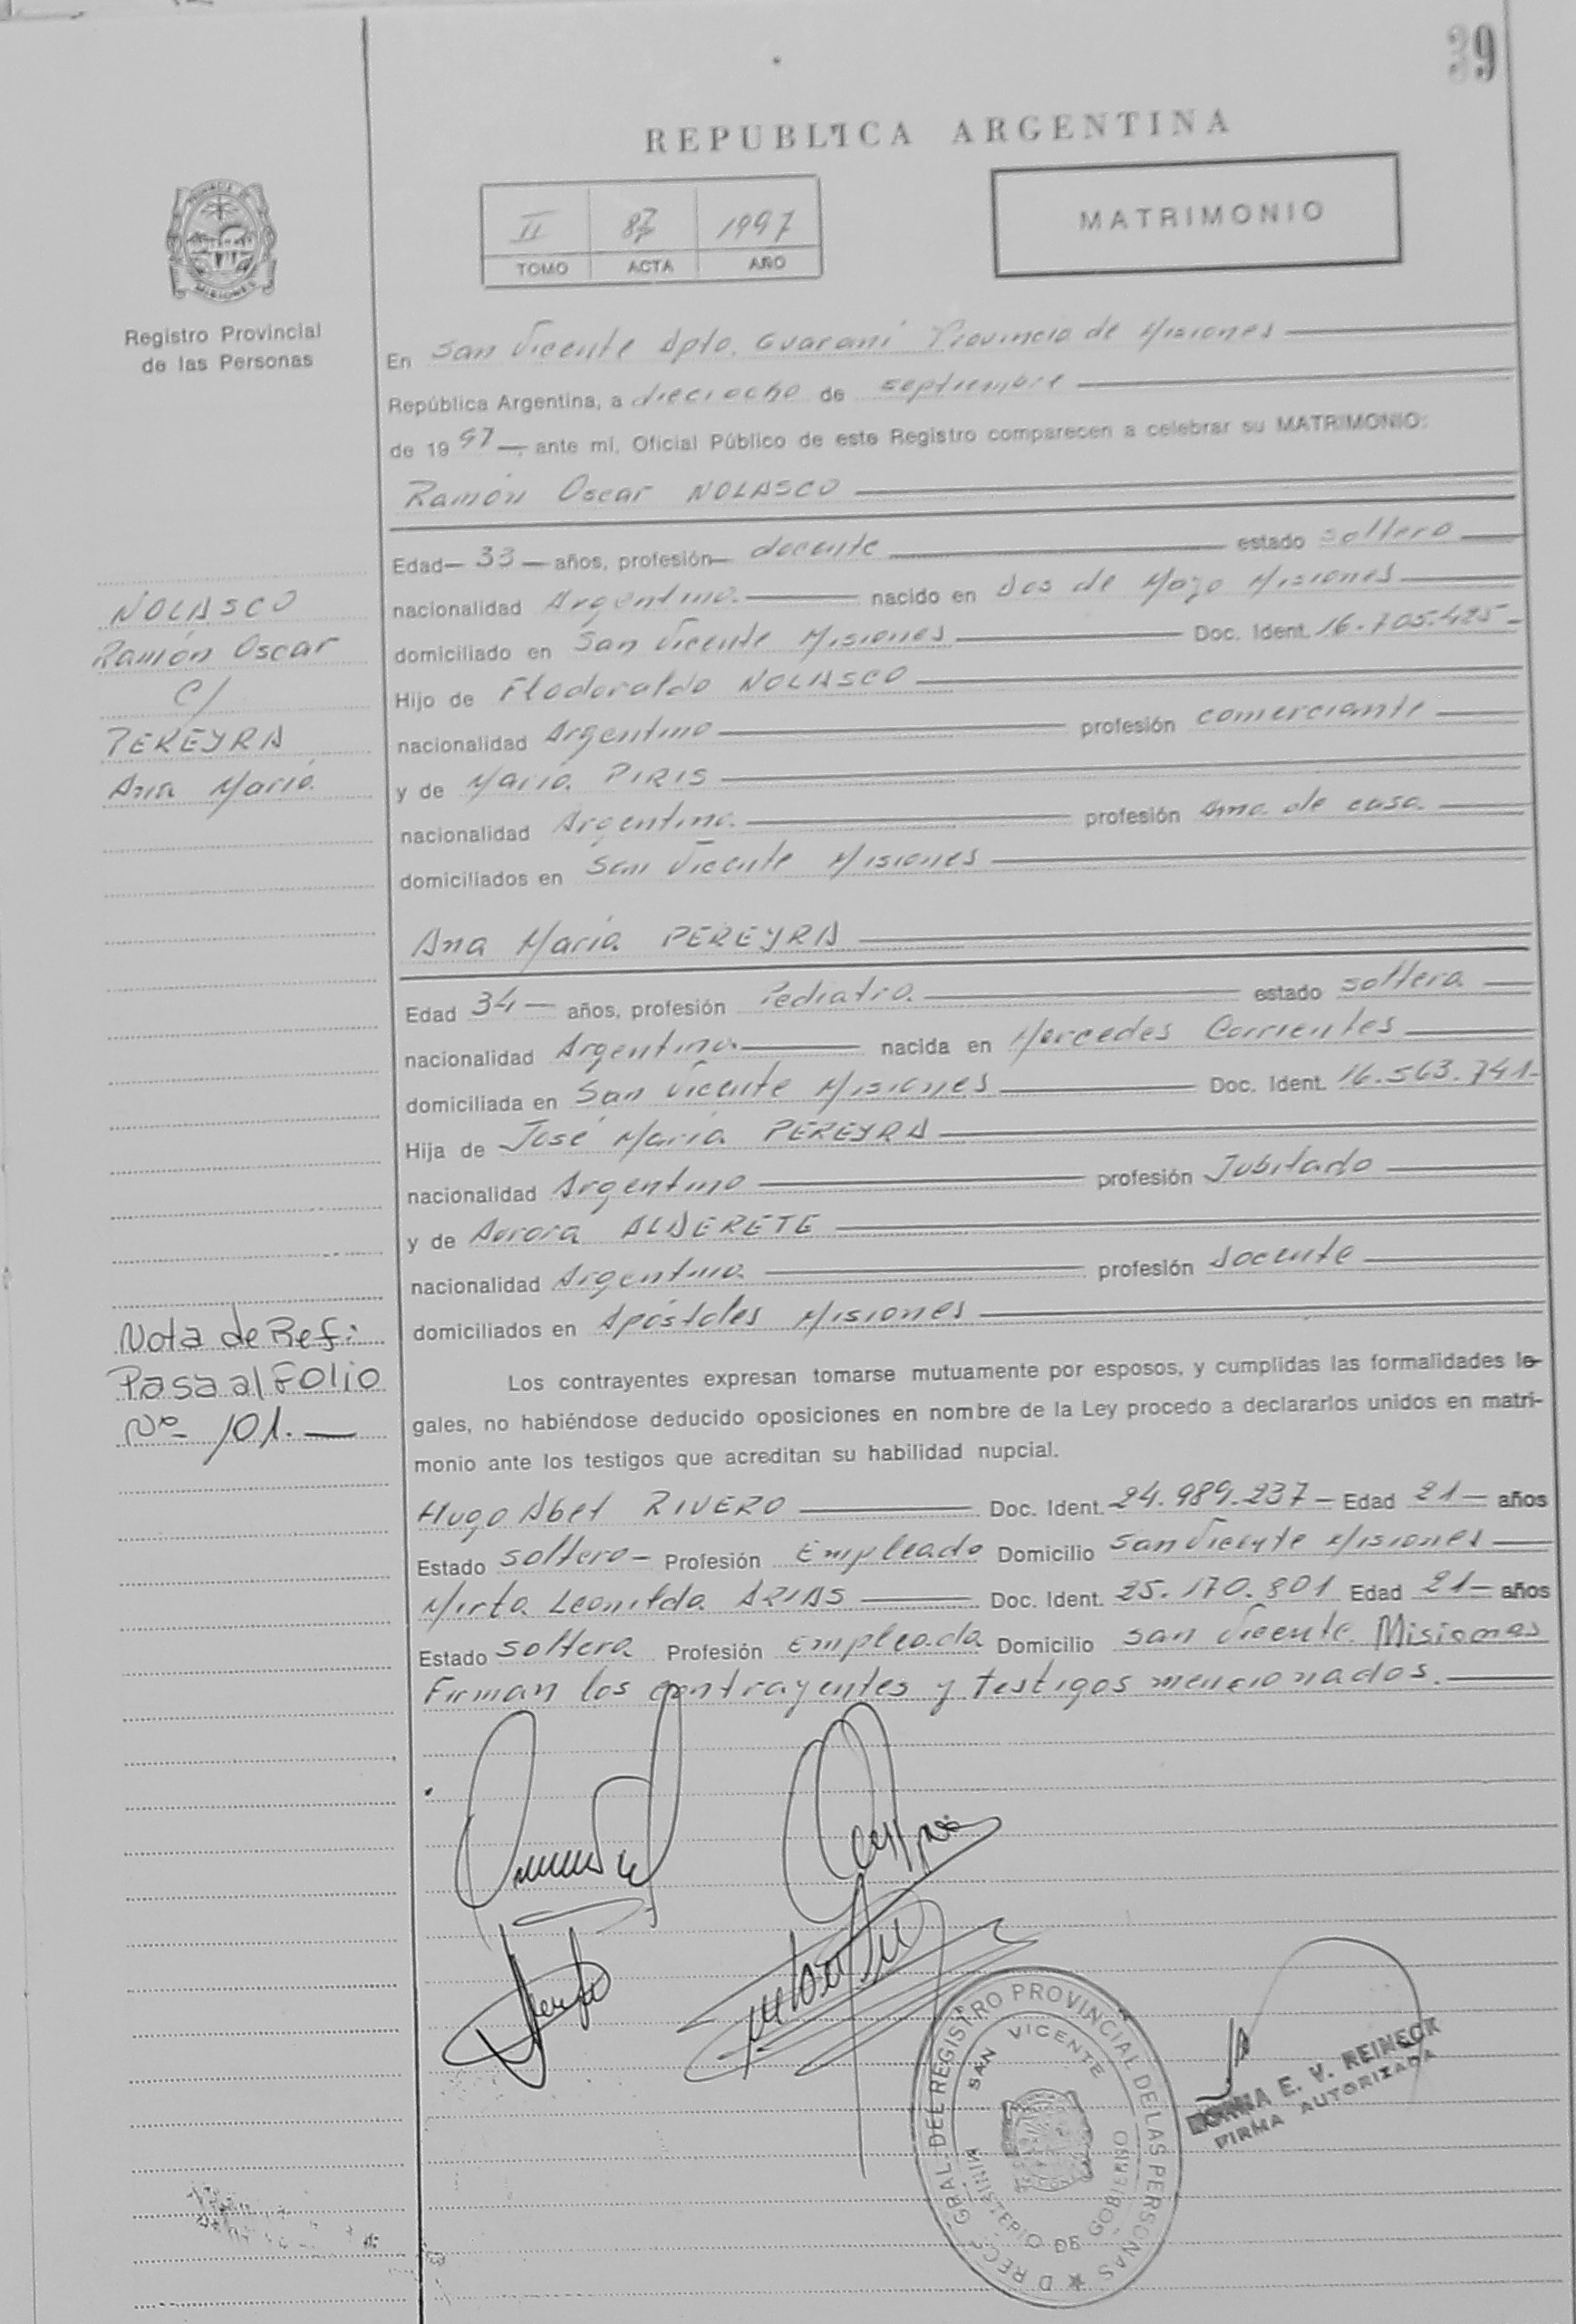 39
REPUBLICA ARGENTINA
II 87 1997
TOMO ACTA AÑO
MATRIMONIO
Registro Provincial
de las Personas
En San Vicente Dpto. Guaraní Provincia de Misiones
República Argentina, a dieciocho de septiembre
de 1997 ante mí, Oficial Público de este Registro comparecen a celebrar su MATRIMONIO:
Ramón Oscar NOLASCO
Edad 33 años, profesión docente estado soltero
nacionalidad Argentina nacido en Dos de Mayo Misiones
domiciliado en San Vicente Misiones Doc. Ident. 16.705.425
Hijo de Flodoraldo NOLASCO
nacionalidad Argentino profesión comerciante
y de María PIRIS
nacionalidad Argentina profesión Ama de casa
domiciliados en San Vicente Misiones
NOLASCO
Ramón Oscar
c/
PEREYRA
Ana María
Ana María PEREYRA
Edad 34 años, profesión Pediatra estado soltera
nacionalidad Argentina nacida en Mercedes Corrientes
domiciliada en San Vicente Misiones Doc. Ident. 16.563.741
Hija de José María PEREYRA
nacionalidad Argentino profesión Jubilado
y de Aurora ALDERETE
nacionalidad Argentina profesión Docente
domiciliados en Apóstoles Misiones
Nota de Ref:
Pasa al Folio
Nº 101.
Los contrayentes expresan tomarse mutuamente por esposos, y cumplidas las formalidades le-
gales, no habiéndose deducido oposiciones en nombre de la Ley procedo a declararlos unidos en matri-
monio ante los testigos que acreditan su habilidad nupcial.
Hugo Abel RIVERO Doc. Ident. 24.989.237 Edad 21 años
Estado soltero Profesión Empleado Domicilio San Vicente Misiones
Mirta Leonilda ARIAS Doc. Ident. 25.170.801 Edad 21 años
Estado soltera Profesión Empleada Domicilio San Vicente Misiones
Firman los contrayentes y testigos mencionados.
DIREC. GRAL. DEL REGISTRO PROVINCIAL DE LAS PERSONAS
SAN VICENTE
MINISTERIO DE GOBIERNO
E. V. REINECK
FIRMA AUTORIZADA